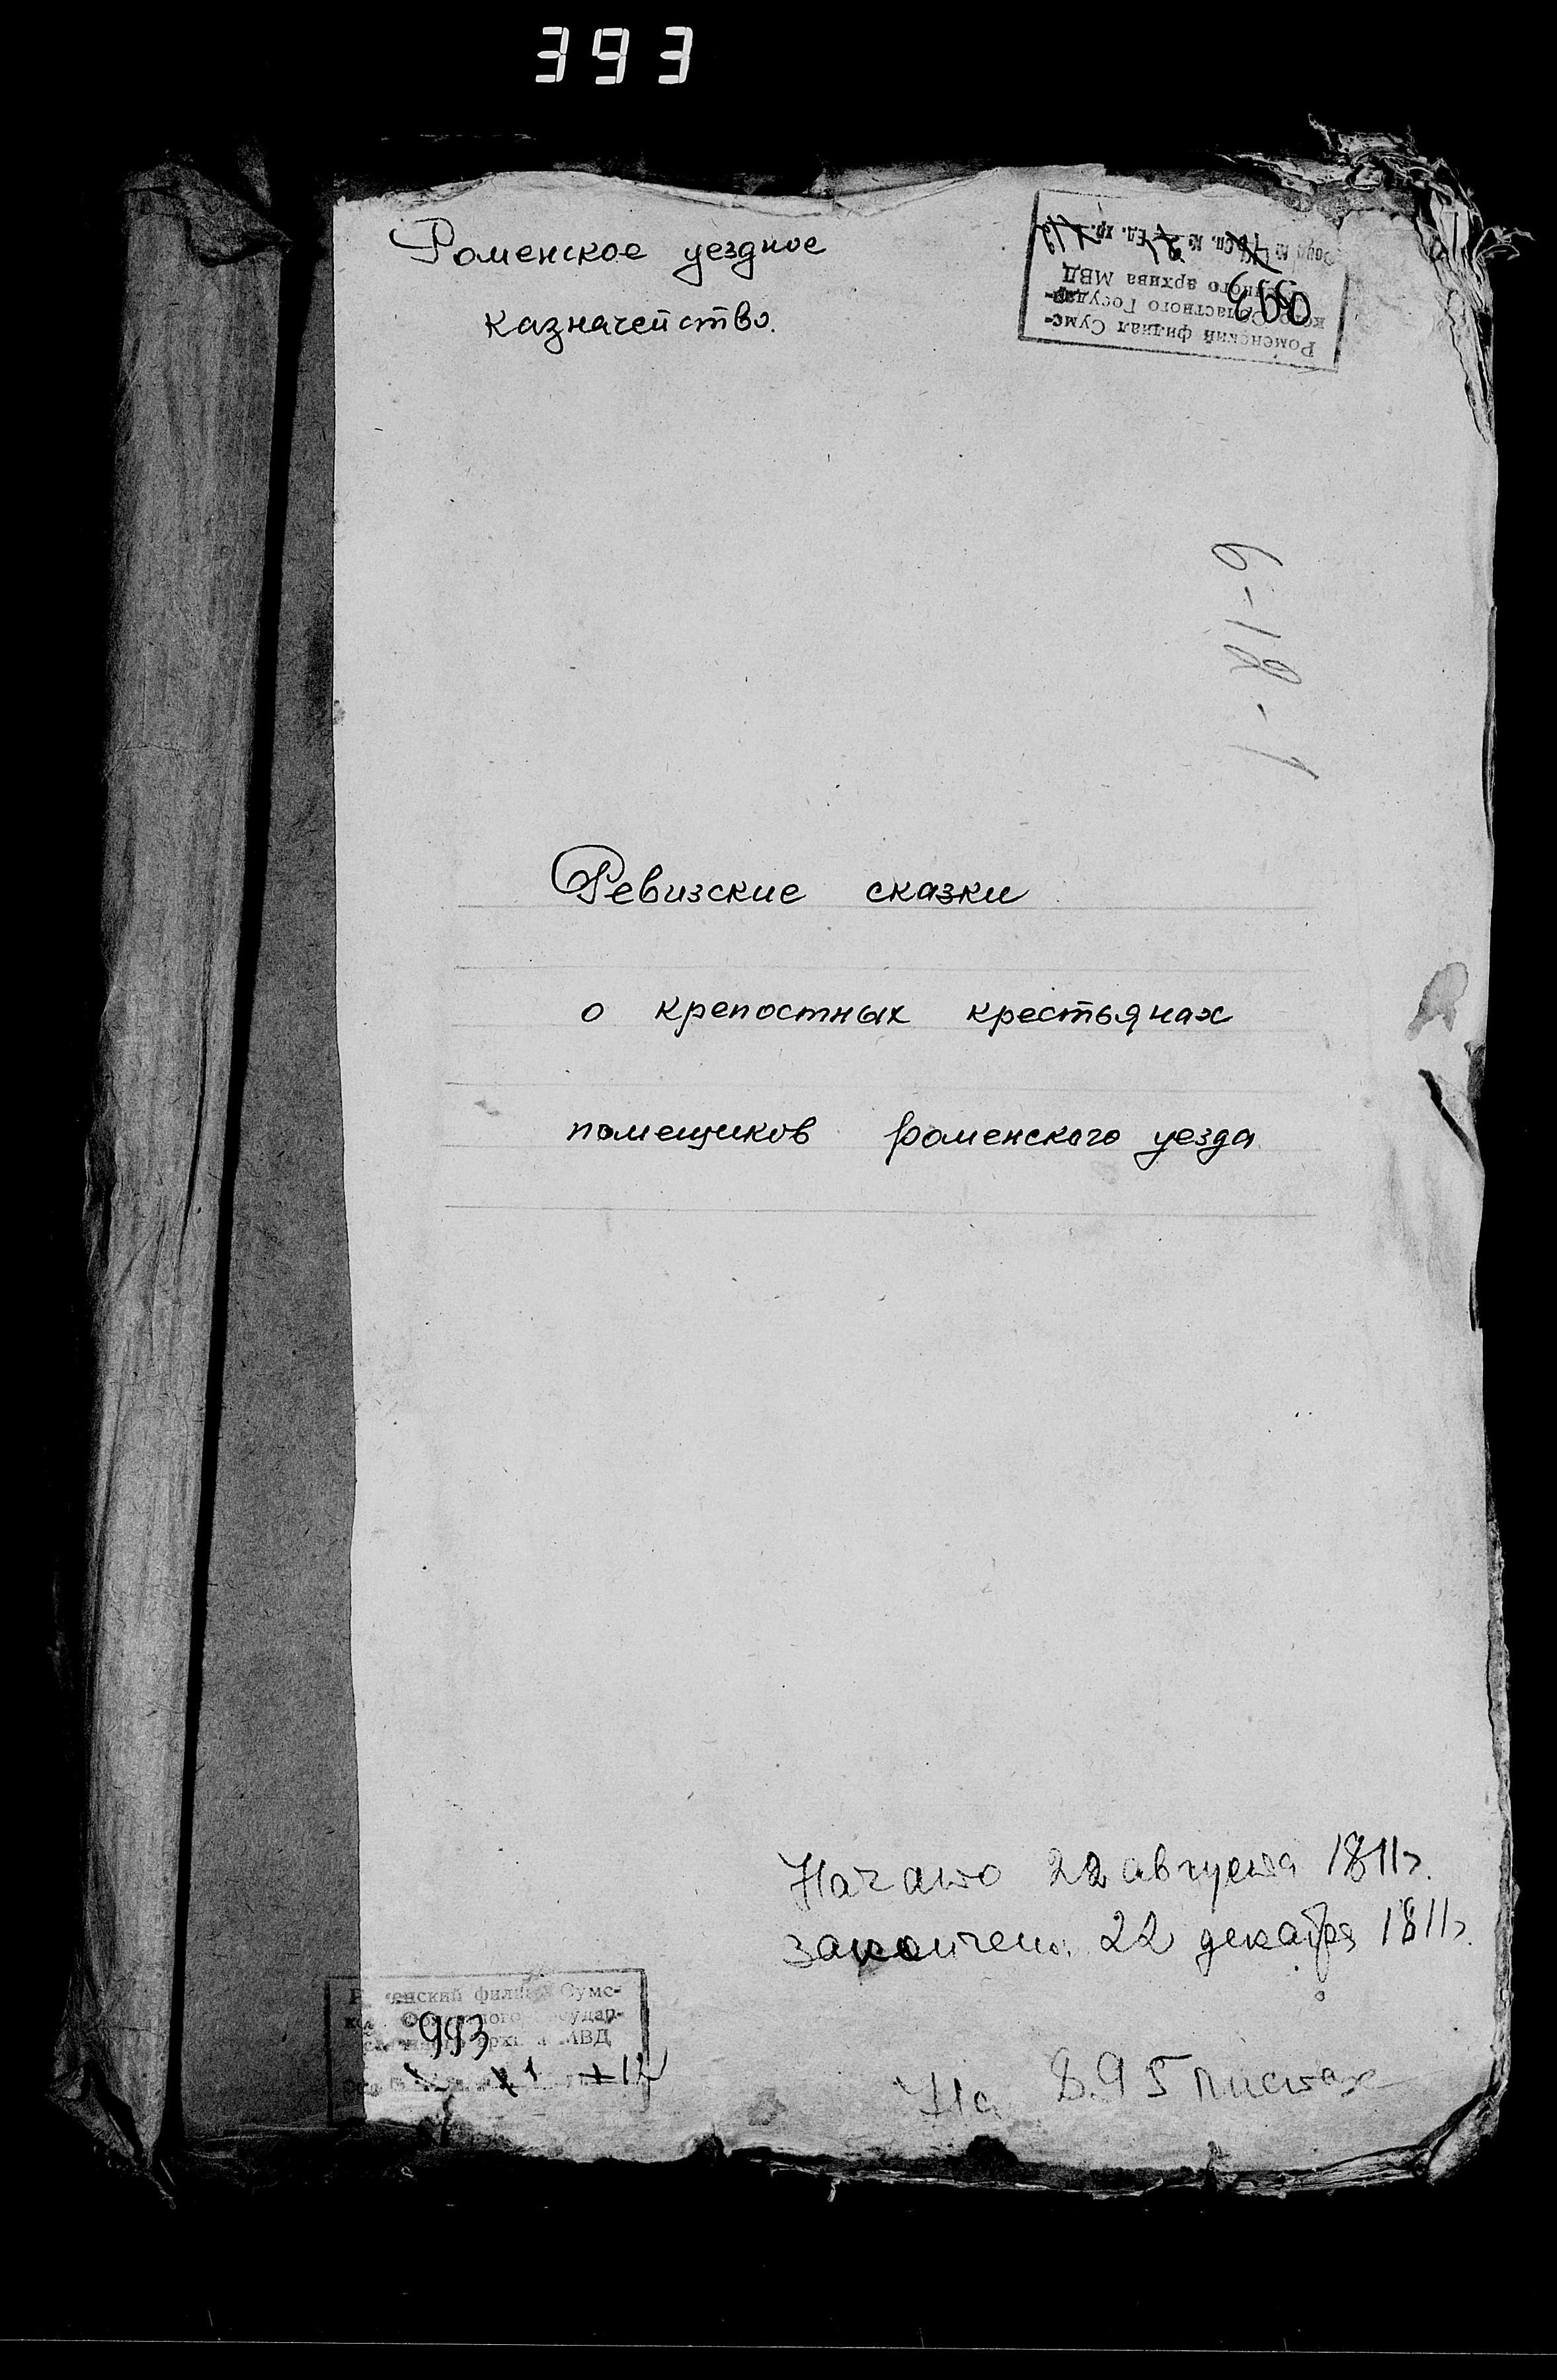 393
Роменское уездное
казначейство.
Роменский филиал Сумс-
кого Областного Государ-
ного архива МВД
993
6-12-1
Ревизские сказки
о крепостных крестьянах
помещиков роменского уезда
Начато 22 августа 1811г.
закончено 22 декабря 1811г.
Роменский филиал Сумс-
Областного Государ-
архива МВД
993
1 12
На 895 листах